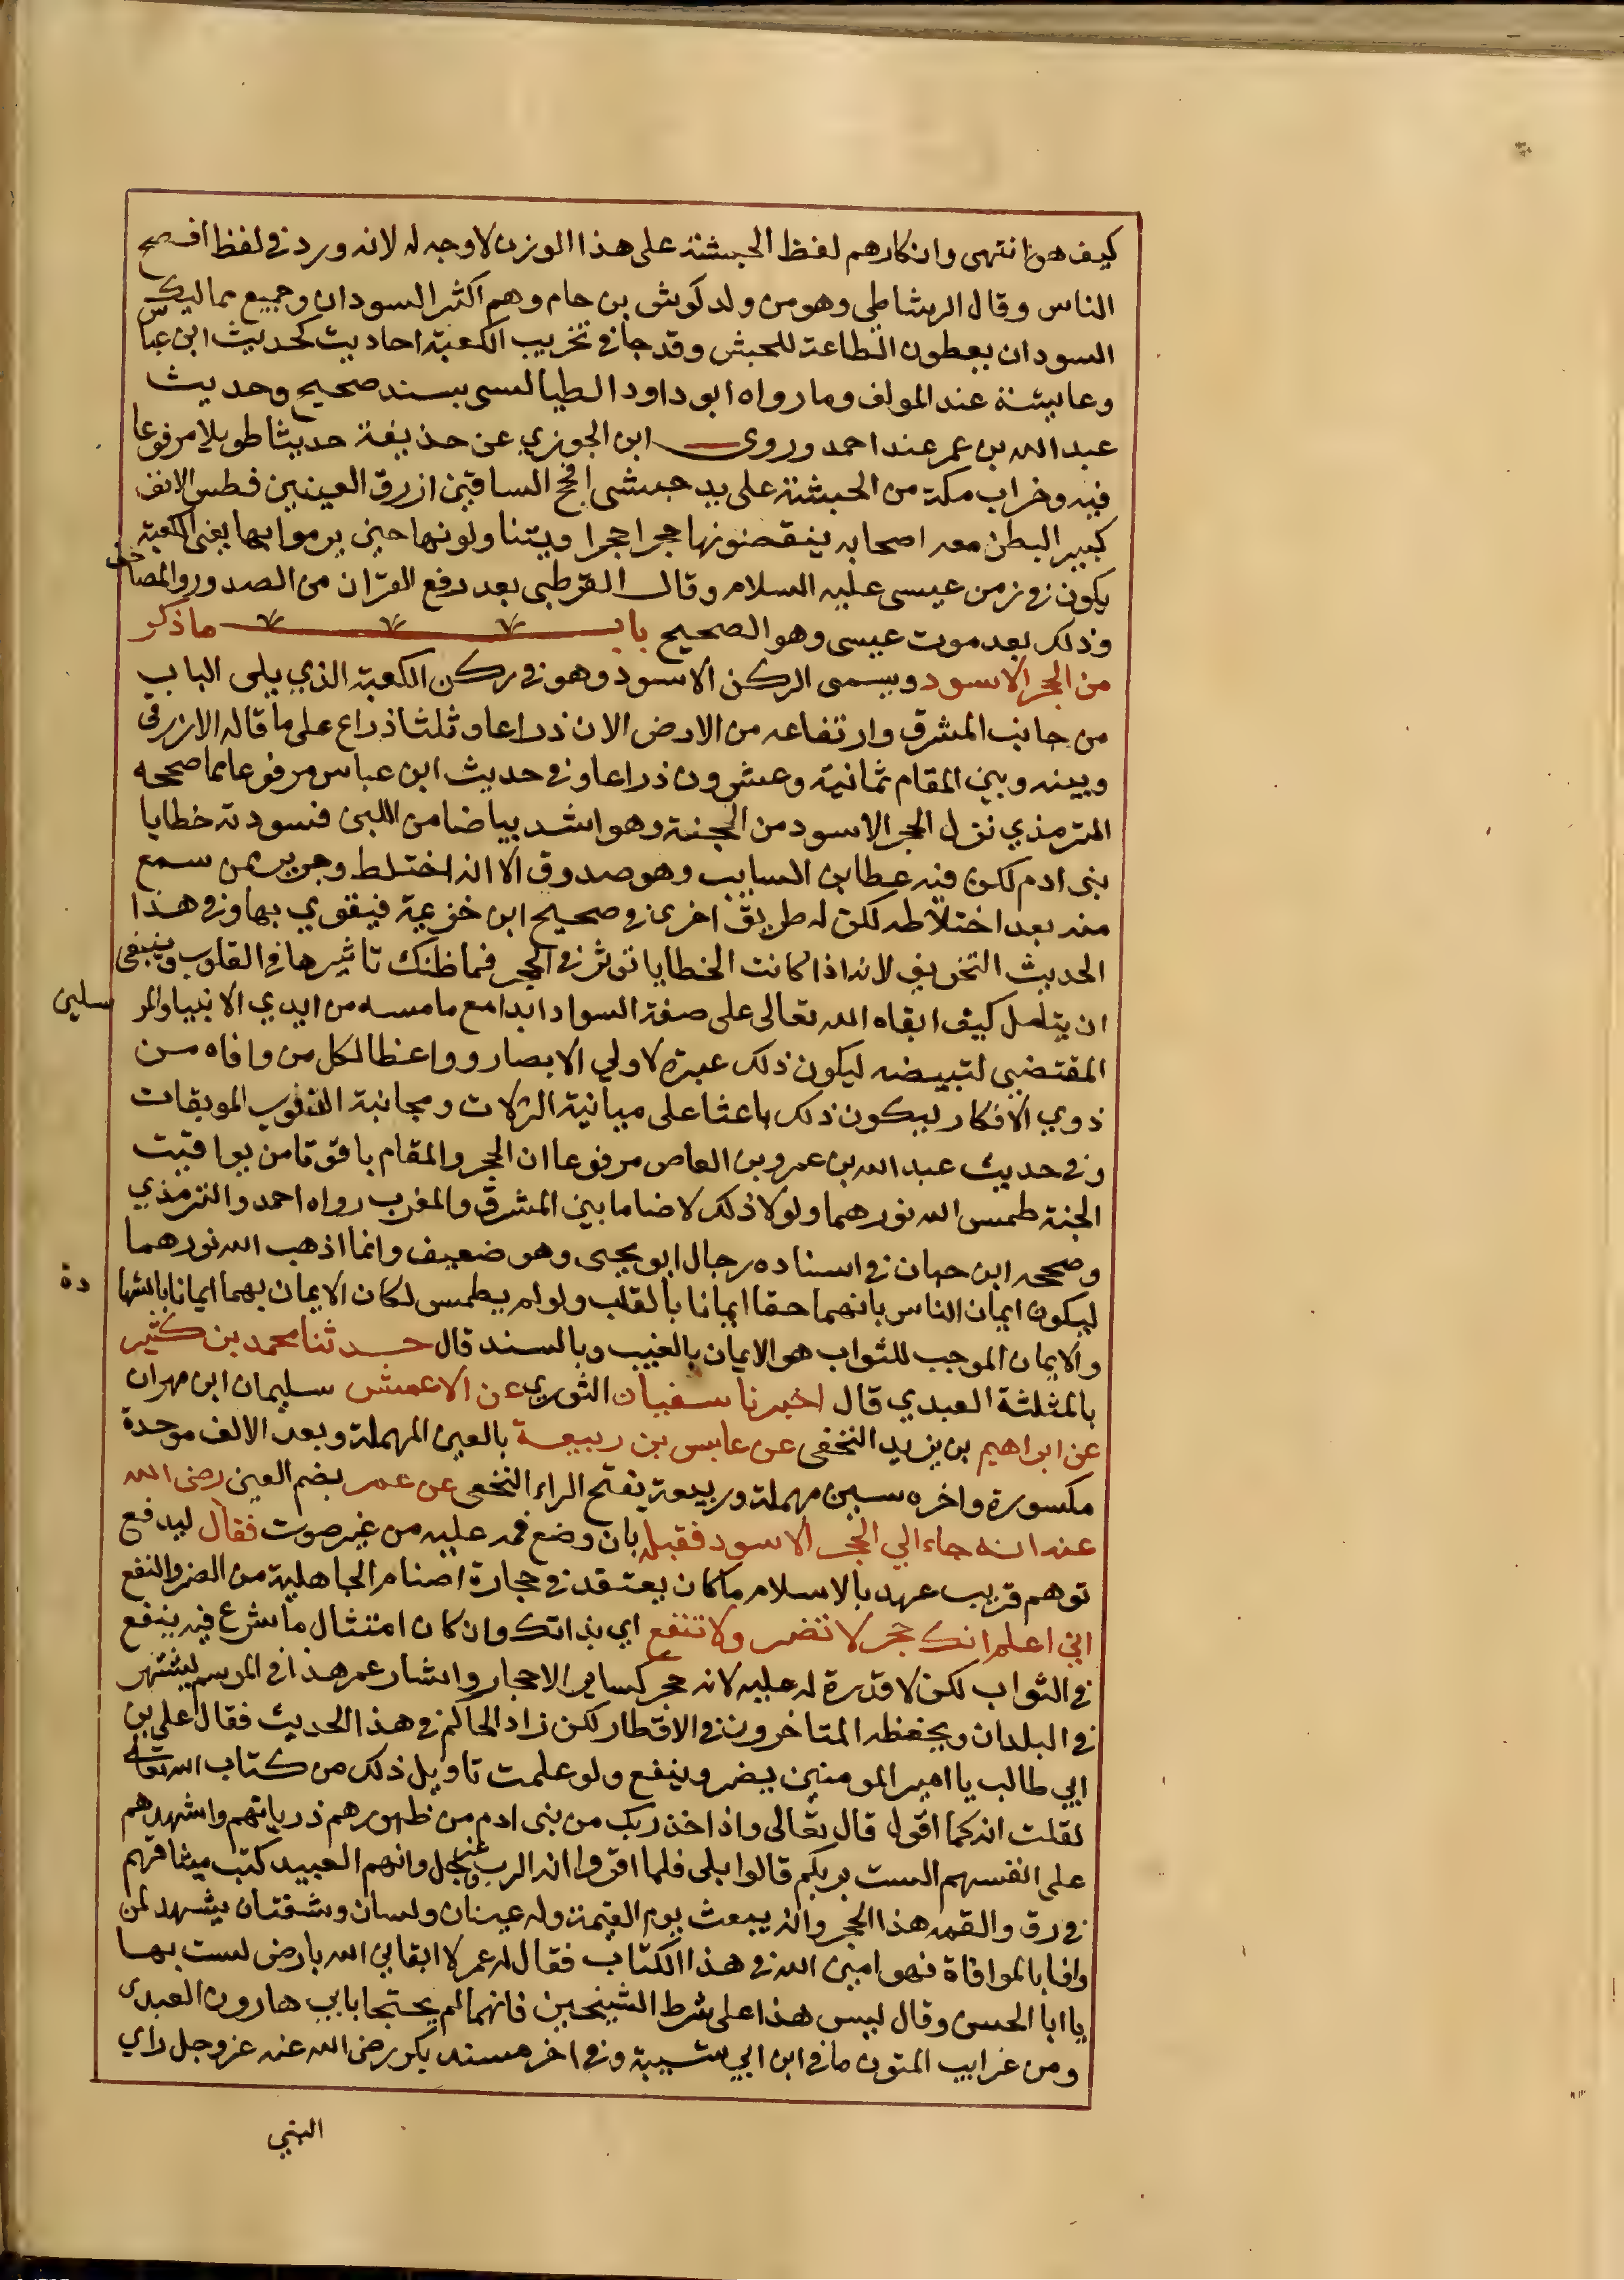 كيف هن انتهى وانكارهم لفظ الحبشة على هذا الوزن لا وجه له لانه ورد في لفظ افصح
الناس وقال الرشاطي وهو من ولد كوش بن حام وهم اكثر السودان وجميع ممالك
السودان يعطون الطاعة للحبش وقد جا في تخريب الكعبة احاديث كحديث ابن عباس
وعايشة عند المولف وما رواه ابو داود الطيالسي بسند صحيح وحديث
عبد الله بن عمر عند احمد وروى ابن الجوزي عن حذيفة حديثا طويلا مرفوعا
فيه وخراب مكة من الحبشة على يد حبشي افحج الساقين ازرق العينين فطس الانف
كبير البطن معه اصحابه ينقضونها حجرا حجرا ويتناولونها حتى يرموا بها يعني الكعبة
يكون في زمن عيسى عليه السلام وقال القرطبي بعد رفع القران من الصدور والمصاحف
وذلك بعد موت عيسى وهو الصحيح باب ما ذكر
من الحجر الاسود ويسمى الركن الاسود وهو في ركن الكعبة الذي يلي الباب
من جانب المشرق وارتفاعه من الارض الان ذراعا وثلثا ذراع على ما قاله الازرقي
وبينه وبين المقام ثمانية وعشرون ذراعا وفي حديث ابن عباس مرفوعا مما صححه
الترمذي نزل الحجر الاسود من الجنة وهو اشد بياضا من اللبن فسودته خطايا
بني ادم لكن فيه عطا بن السايب وهو صدوق الا انه اختلط وجرير ممن سمع
منه بعد اختلاطه لكن له طريق اخرى في صحيح ابن خزيمة فيقوي بها وفي هذا
الحديث التخويف لانه اذا كانت الخطايا توثر في الحجر فما ظنك تاثيرها في القلوب وينبغي
ان يتامل كيف ابقاه الله تعالى على صفة السواد ابدا مع ما مسه من ايدي الانبيا والمر سلين
المقتضي لتبييضه ليكون ذلك عبرة لاولي الابصار وواعظا لكل من وافاه من
ذوي الافكار ليكون ذلك باعثا على مباينة الزلات ومجانبة الذنوب الموبقات
وفي حديث عبد الله بن عمرو بن العاص مرفوعا ان الحجر والمقام ياقوتتا من يواقيت
الجنة طمس الله نورهما ولولا ذلك لاضا ما بين المشرق والمغرب رواه احمد والترمذي
وصححه ابن حبان في اسناده رجال ابو يحيى وهو ضعيف وانما اذهب الله نورهما
ليكون ايمان الناس بانهما حقا ايمانا بالقلب ولو لم يطمس لكان الايمان بهما ايمانا بالشها دة
والايمان الموجب للثواب هو الايمان بالغيب وبالسند قال حدثنا محمد بن كثير
بالمثلثة العبدي قال اخبرنا سفيان الثوري عن الاعمش سليمان ابن مهران
عن ابراهيم بن يزيد النخفي عن عابس بن ربيعة بالعين المهملة وبعد الالف موحدة
مكسورة واخره سين مهملة وربيعة بفتح الراء النخعي عن عمر بضم العين رضى الله
عنه انه جاء الي الحجر الاسود فقبله بان وضع فمه عليه من غير صوت فقال ليدفع
توهم قريب عهد بالاسلام ما كان يعتقد في حجارة اصنام الجاهلية من الضر والنفع
اني اعلم انك حجر لا تضر ولا تنفع اي بذاتك وان كان امتثال ما شرع فيه ينفع
في الثواب لكن لا قدرة له عليه لانه حجر كساير الاحجار واشار عمر هذا في الموسم ليشتهر
في البلدان ويحفظه المتاخرون في الاقطار لكن زاد الحاكم في هذا الحديث فقال علي بن
ابي طالب يا امير المومنين يضر وينفع ولو علمت تاويل ذلك من كتاب الله تعالى
لقلت انه كما اقول قال تعالى واذ اخذ ربك من بني ادم من ظهورهم ذرياتهم واشهدهم
على انفسهم الست بربكم قالوا بلى فلما اقروا انه الرب عز وجل وانهم العبيد كتب ميثاقهم
في رق والقمه هذا الحجر وانه يبعث يوم القيمة وله عينان ولسان وشفتان يشهد لمن
وافا بالموافاة فهو امين الله في هذا الكتاب فقال له عمر لا ابقاني الله بارض لست بها
يا ابا الحسن وقال ليس هذا على شرط الشيخين فانهما لم يحتجا بابي هارون العبدي
ومن غرايب المتون ما في ابن ابي شيبة وفي اخر مسند بكر رضى الله عنه عز وجل راي
النبي